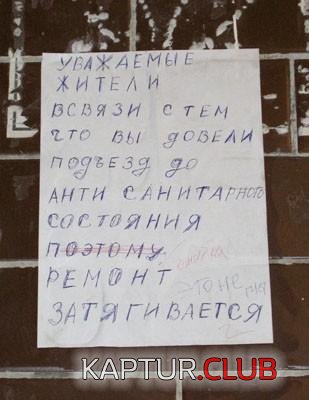 УВАЖАЕМЫЕ
ЖИТЕЛИ
ВСВЯЗИ С ТЕМ
ЧТО ВЫ ДОВЕЛИ
ПОДЪЕЗД ДО
АНТИ САНИТАРНОГО
СОСТОЯНИЯ
ПОЭТОМУ
РЕМОНТ
ЗАТЯГИВАЕТСЯ
KAPTUR.CLUB